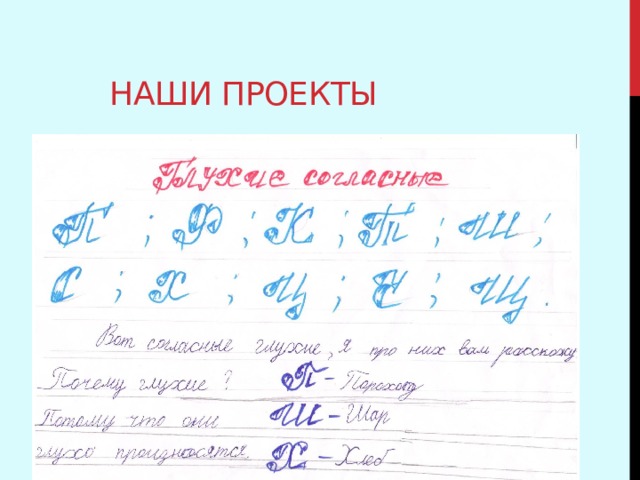 НАШИ ПРОЕКТЫ
Глухие согласные
П ; Ф ; К ; Т ; Ш ;
С ; Х ; Ц ; Ч ; Щ .
Вот согласные глухие, я про них вам расскажу
Почему глухие ? П – Пароход
Потому что они Ш – Шар
глухо произносятся. Х – Хлеб